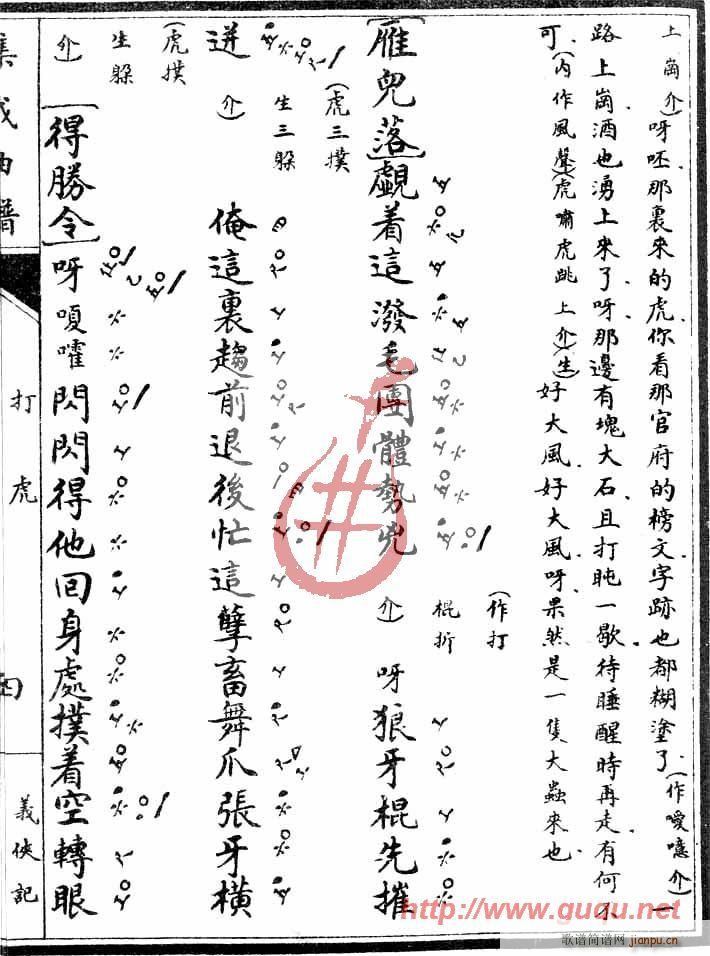 上崗介)呀呸那裏來的虎你看那官府的榜文字跡也都糊塗了(作噯噫介)一
路上崗酒也湧上來了呀那邊有塊大石且打盹一歇待睡醒時再走有何不
可(內作風聲)(虎嘯虎跳上介)(生)好大風好大風呀果然是一隻大蟲來也
[雁兒落]覷着這潑毛團體勢兇(作打棍折介)呀狼牙棍先摧
迸(虎三撲生三躲介)俺這裏趨前退後忙這孽畜舞爪張牙橫
(虎撲生躲介)[得勝令]呀嗄嚯閃閃得他回身處撲着空轉眼
集成曲譜
打虎
義俠記
http://www.guqu.net
歌谱简谱网
jianpu.cn